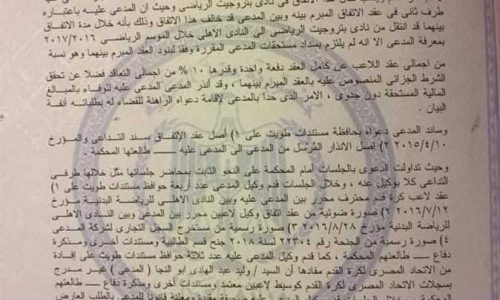 طرف ثانى فى عقد الاتفاق المبرم بينه وبين المدعى قد خالف هذا الاتفاق وذلك بأنه خلال مدة الاتفاق
بينهما قد انتقل من نادى بتروجيت الرياضى الى النادى الاهلى خلال الموسم الرياضى ٢٠١٧/٢٠١٦
بمعرفة المدعى الا انه لم يلتزم بسداد مستحقات المدعى المقررة وفقا لبنود العقد المبرم بينهما وهو نسبة
من اجمالى عقد اللاعب عن كامل العقد دفعة واحدة وقدرها ١٠ % من اجمالى التعاقد فضلا عن تحقق
الشرط الجزائى المنصوص عليه بالعقد المبرم بينهما , وقد أنذر المدعى المدعى عليه للوفاء بالمبالغ
المالية المستحقة دون جدوى , الامر الذى حدا بالمدعى لإقامة دعواه الراهنة للقضاء له بطلباته آنفة
البيان .
وساند المدعى دعواه بحافظة مستندات طويت على ١) أصل عقد الاتفاق سند التداعى والمؤرخ
٢٠١٥/٤/١٠ ٢) اصل الانذار المرسل من المدعى الى المدعى عليه ـــ طالعتها المحكمة .
وحيث تداولت الدعوى بالجلسات أمام المحكمة على النحو الثابت بمحاضر جلساتها مثل خلالها طرفى
التداعى كلا بوكيل عنه , وخلال الجلسات قدم وكيل المدعى عدد أربعة حوافظ مستندات طويت على ١)
عقد لاعب كرة قدم محترف محرر بين المدعى عليه وبين النادى الاهلى للرياضة البدنية مؤرخ
٢٠١٦/٧/١٢ ٢) صورة ضوئية من عقد اتفاق وكيل لاعبين محرر بين المدعى وبين النادى الاهلى
للرياضة البدنية مؤرخ ٢٠١٦/٨/٢٨ ٣) صورة رسمية من مستخرج السجل التجارى لشركة المدعى
٤) صورة رسمية من الجنحة رقم ٢٢٣٠٤ لسنة ٢٠١٨ جنح قسم الطالبية ومستندات أخرى ومذكرة
دفاع ـــ طالعتهم المحكمة , كما قدم وكيل المدعى عليه عدد ثلاثة حوافظ مستندات طويت على إفادة
من الاتحاد المصرى لكرة القدم مفادها أن السيد / وليد عبد الهادى ابو النجا ( المدعى ) غير مدرج
بسجلات الاتحاد المصرى لكرة القدم كوسيط لاعبين معتمد ومستندات أخرى ومذكرة دفاع ـــ